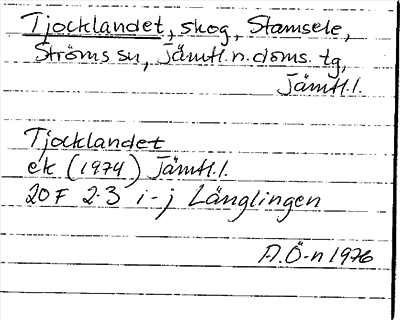 Tjocklandet, skog, Stamsele,
Ströms sn, Jämtl. n. doms. tg,
Jämtl. l.
Tjocklandet
ek (1974) Jämtl. l.
20 F 2-3 i-j Länglingen
A.Ö-n 1976